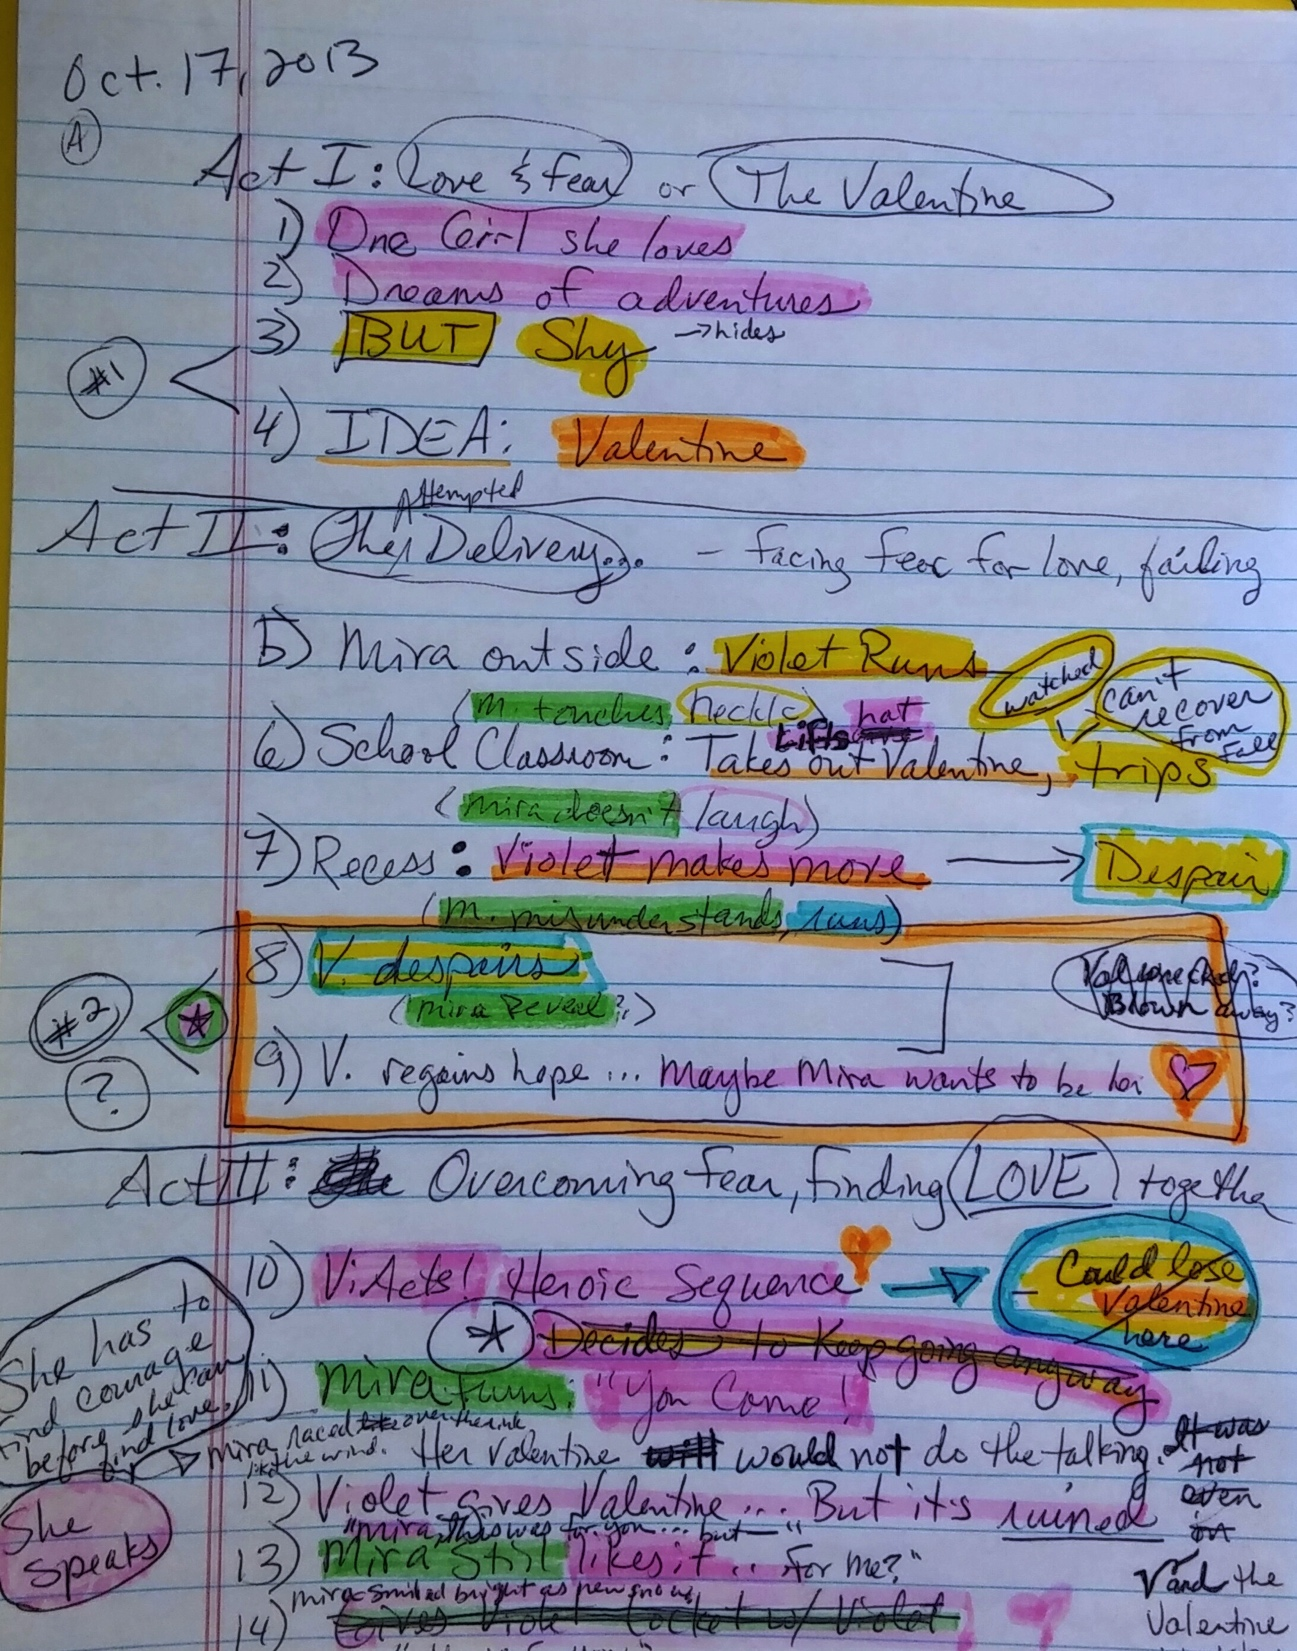 Oct. 17, 2013
A
Act I: Love & Fear or The Valentine
1) One Girl she loves
2) Dreams of adventures
3) BUT Shy → hides
#1
4) IDEA: Valentine
Attempted
Act II: The Delivery... - facing fear for love, failing
5) Mira outside: Violet Runs
(M. touches neckl) hat watched can't recover from fall
6) School Classroom: Takes out Valentine, trips
Lifts
(Mira doesn't laugh)
7) Recess: Violet makes move → Despair
(M. misunderstands, runs)
8) V. despairs
(Mira Reveal?)
Blown away?
#2
?
9) V. regains hope ... Maybe Mira wants to be
Act III: Overcoming Fear, finding LOVE together
10) Vi Acts! Heroic Sequence → - Could lose Valentine here
Decides to keep going anyway
She has to find courage before she can find love.
11) Mira turns: "You Came!"
Mira raced over the rink like the wind.
Her Valentine would not do the talking. It was not even in
12) Violet gives Valentine ... But it's ruined
She speaks
"Mira, this was for you ... but—"
13) Mira Still likes it ... For me?"
Mira smiled bright as new snow
√ and the Valentine
14) Gives Violet Locket w/ Violet